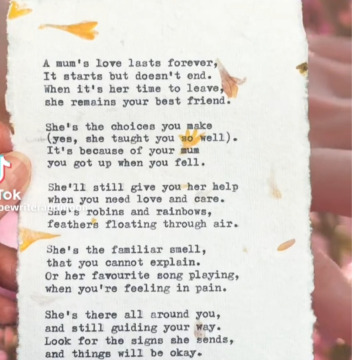 A mum's love lasts forever,
It starts but doesn't end.
When it's her time to leave,
she remains your best friend.
She's the choices you make
(yes, she taught you so well).
It's because of your mum
you got up when you fell.
She'll still give you her help
when you need love and care.
She's robins and rainbows,
feathers floating through air.
She's the familiar smell,
that you cannot explain.
Or her favourite song playing,
when you're feeling in pain.
She's there all around you,
and still guiding your way.
Look for the signs she sends,
and things will be okay.
Tok